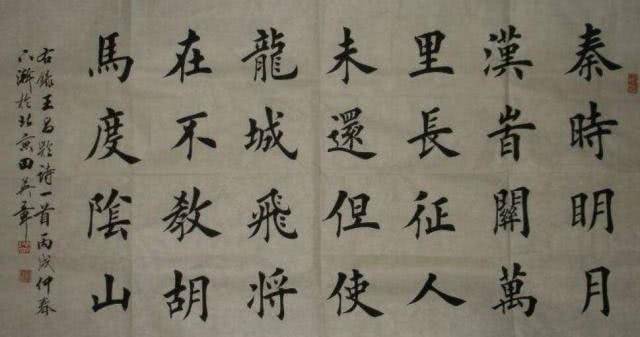 秦時明月
漢旹關萬
里長征人
未還但使
龍城飛將
在不教胡
馬度陰山
右錄王昌齡詩一首丙戌仲春
下澣於北京田英章